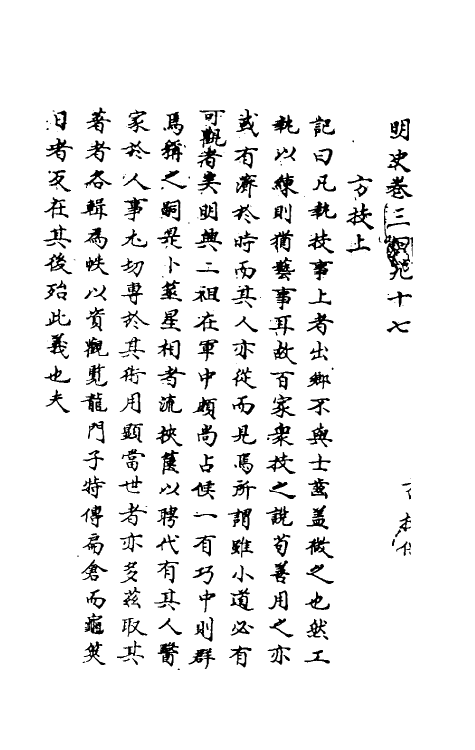 明史卷三九十七
方技上
記曰凡執技事上者出鄉不與士齒盖微之也然工
執以練則猶藝事耳故百家衆技之說苟善用之亦
或有濟於時而其人亦從而見焉所謂雖小道必有
可觀者矣明興二祖在軍中頗尚占候一有巧中則群
焉稱之嗣是卜筮星相者流挾舊以騁代有其人醫
家於人事尤切專於其術用顯當世者亦多茲取其
著者各輯為帙以資觀覽龍門子特傳扁倉而龜筴
日者反在其後殆此義也夫